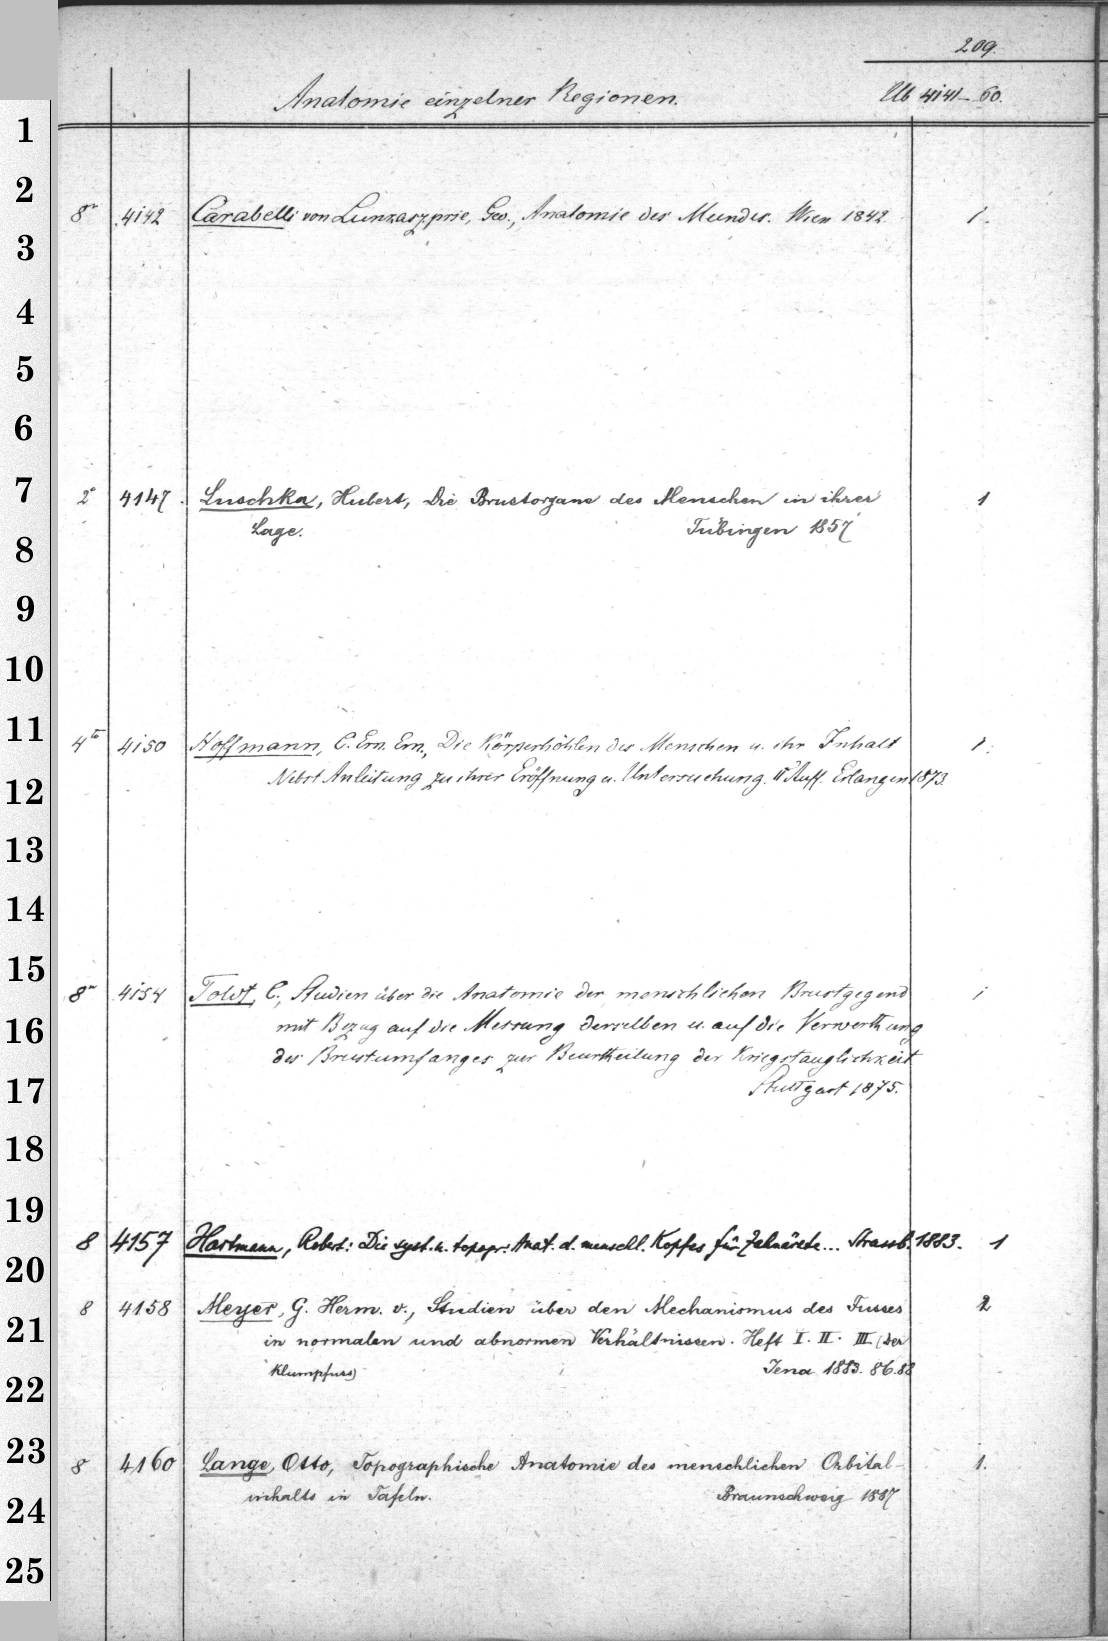 209.
Anatomie einzelner Regionen. Ub 4141–60.
1
2
8° 4142 Carabelli von Lunkaszprie, Geo., Anatomie des Mundes. Wien 1842. 1.
3
4
5
6
7
2° 4147. Luschka, Hubert, Die Brustorgane des Menschen in ihrer 1
Lage. Tübingen 1857
8
9
10
11
4to 4150 Hoffmann, C. Ern. Em., Die Körperhöhlen des Menschen u. ihr Inhalt 1.
Nebst Anleitung zu ihrer Eröffnung u. Untersuchung. II Aufl. Erlangen 1873.
12
13
14
15
8° 4154 Toldt, C., Studien über die Anatomie der menschlichen Brustgegend 1
mit Bezug auf die Messung derselben u. auf die Verwerthung
16
des Brustumfanges zur Beurtheilung der Kriegstauglichkeit
Stuttgart 1875.
17
18
19
8 4157 Hartmann, Robert: Die syst. u. topogr. Anat. d. menschl. Kopfes für Zahnärzte... Strassb. 1883. 1
20
8 4158 Meyer, G. Herm. v., Studien über den Mechanismus des Fusses 2
21
in normalen und abnormen Verhältnissen. Heft I. II. III (Der
Klumpfuss) Jena 1883. 86. 88
22
23
8 4160 Lange, Otto, Topographische Anatomie des menschlichen Orbital- 1.
inhalts in Tafeln. Braunschweig 1887
24
25